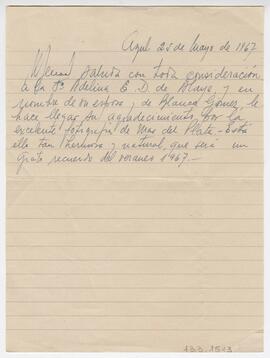 Azul 25 de Mayo de 1967
saluda con toda consideración
a la Sra Adelina E. D. de Blaye, y en
nombre de su esposa y de Blanca Gómez, le
hace llegar su agradecimiento, por la
excelente fotografía de Mar del Plata - Está
ella tan hermosa y natural, que será un
grato recuerdo del verano 1967.-
133.1513